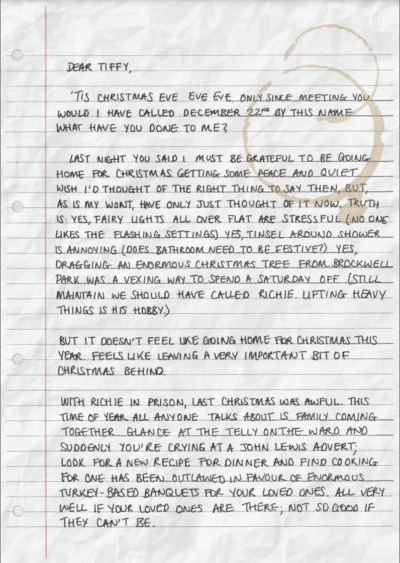 DEAR TIFFY,
'TIS CHRISTMAS EVE EVE EVE. ONLY SINCE MEETING YOU
WOULD I HAVE CALLED DECEMBER 22ND BY THIS NAME
WHAT HAVE YOU DONE TO ME?
LAST NIGHT YOU SAID I MUST BE GRATEFUL TO BE GOING
HOME FOR CHRISTMAS GETTING SOME PEACE AND QUIET.
WISH I'D THOUGHT OF THE RIGHT THING TO SAY THEN, BUT,
AS IS MY WONT, HAVE ONLY JUST THOUGHT OF IT NOW. TRUTH
IS: YES, FAIRY LIGHTS ALL OVER FLAT ARE STRESSFUL (NO ONE
LIKES THE FLASHING SETTINGS) YES, TINSEL AROUND SHOWER
IS ANNOYING (DOES BATHROOM NEED TO BE FESTIVE?) YES,
DRAGGING AN ENORMOUS CHRISTMAS TREE FROM BROCKWELL
PARK WAS A VEXING WAY TO SPEND A SATURDAY OFF (STILL
MAINTAIN WE SHOULD HAVE CALLED RICHIE. LIFTING HEAVY
THINGS IS HIS HOBBY.)
BUT IT DOESN'T FEEL LIKE GOING HOME FOR CHRISTMAS THIS
YEAR. FEELS LIKE LEAVING A VERY IMPORTANT BIT OF
CHRISTMAS BEHIND.
WITH RICHIE IN PRISON, LAST CHRISTMAS WAS AWFUL. THIS
TIME OF YEAR ALL ANYONE TALKS ABOUT IS FAMILY COMING
TOGETHER. GLANCE AT THE TELLY ON THE WARD AND
SUDDENLY YOU'RE CRYING AT A JOHN LEWIS ADVERT;
LOOK FOR A NEW RECIPE FOR DINNER AND FIND COOKING
FOR ONE HAS BEEN OUTLAWED IN FAVOUR OF ENORMOUS
TURKEY-BASED BANQUETS FOR YOUR LOVED ONES. ALL VERY
WELL IF YOUR LOVED ONES ARE THERE; NOT SO GOOD IF
THEY CAN'T BE.